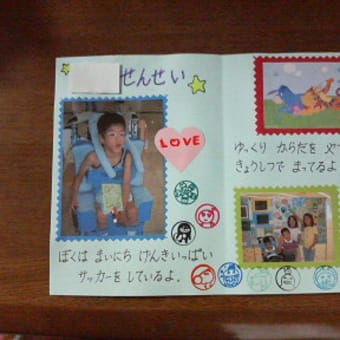 せんせい
LOVE
ぼくは まいにち げんきいっぱい
サッカーを しているよ。
ゆっくり からだを 
きょうしつで まってるよ